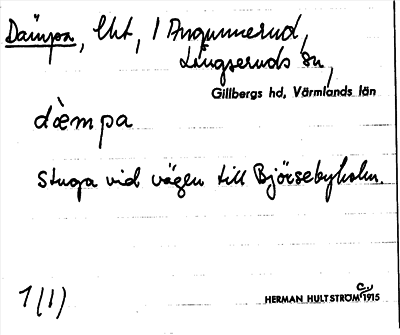 Dämpa, lht, 1 Angunnerud,
Långseruds sn,
Gillbergs hd, Värmlands län
dæ̀mpa
stuga vid vägen till Björsebyholm.
1(1)
HERMAN HULTSTRÖM c. 1915